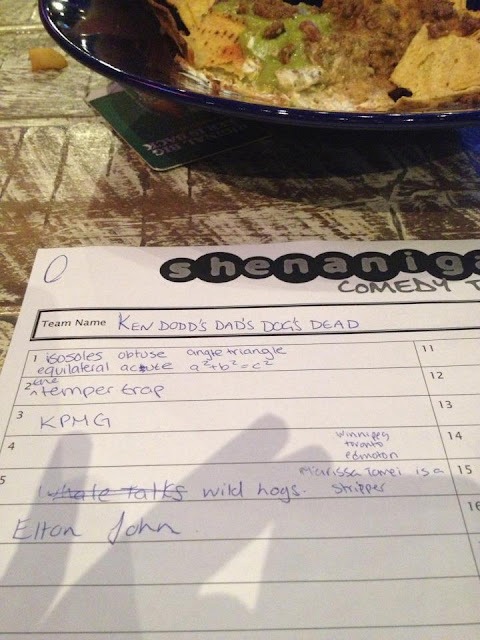 shenaniga
COMEDY T
Team Name KEN DODD'S DAD'S DOG'S DEAD
1 isosoles obtuse angle triangle
equilateral acute a²+b²=c²
2 the temper trap
3 KPMG
4 Winnipeg
toronto
edmoton
Marissa Tomei is a
stripper
5 whale talks wild hogs.
Elton John
11
12
13
14
15
16